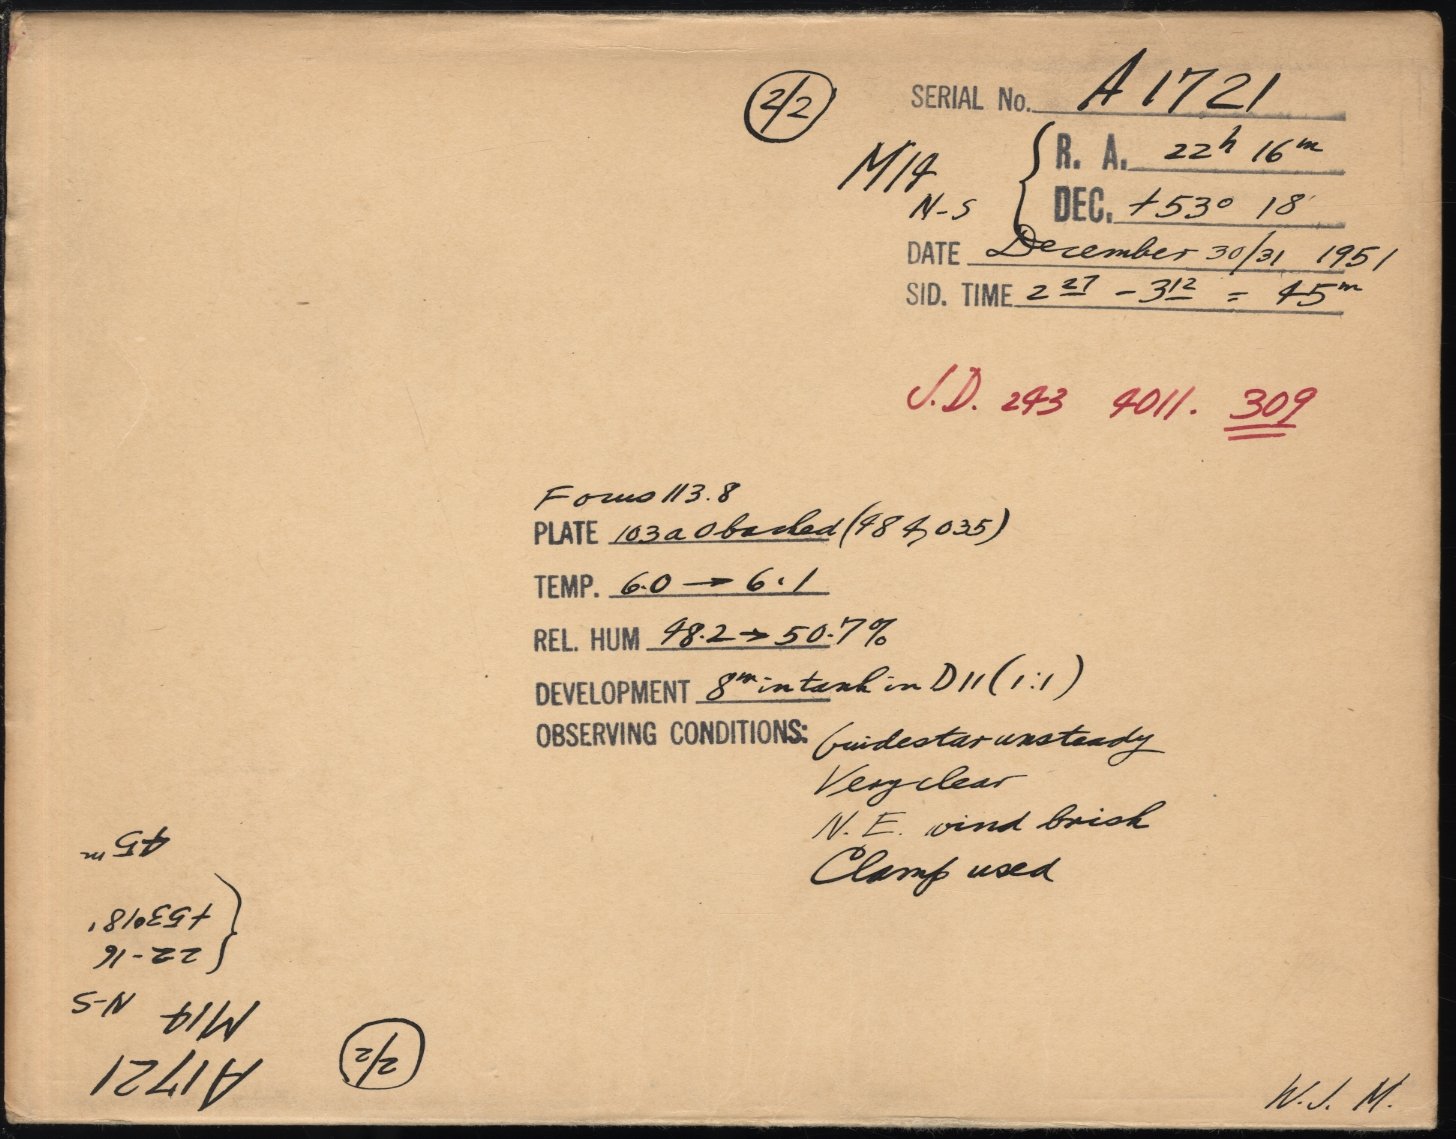 2/2
SERIAL No. A1721
M14 R. A. 22h 16m
N-S DEC. +53° 18'
DATE December 30/31 1951
SID. TIME 2 27 - 3 12 = 45m
J.D. 243 4011. 309
Focus 113.8
PLATE 103aO backed (484,035)
TEMP. 6.0 → 6.1
REL. HUM 48.2 → 50.7%
DEVELOPMENT 8m in tank in D11 (1:1)
OBSERVING CONDITIONS: Guidestar unsteady
Very clear
N. E. wind brisk
Clamp used
W. J. M.
A1721 2/2
M14 N-S
22-16
+53°18'
45m